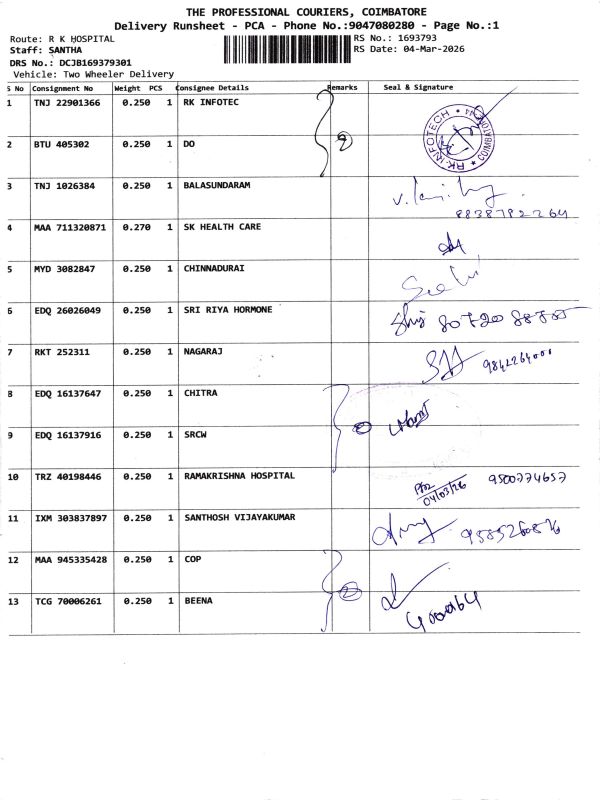 THE PROFESSIONAL COURIERS, COIMBATORE
Delivery Runsheet - PCA - Phone No.:9047080280 - Page No.:1
Route: R K HOSPITAL
RS No.: 1693793
Staff: SANTHA
RS Date: 04-Mar-2026
DRS No.: DCJB169379301
Vehicle: Two Wheeler Delivery
S No Consignment No Weight PCS Consignee Details Remarks Seal & Signature
1 TNJ 22901366 0.250 1 RK INFOTEC
RK INFOTECH
2 BTU 405302 0.250 1 DO
3 TNJ 1026384 0.250 1 BALASUNDARAM
4 MAA 711320871 0.270 1 SK HEALTH CARE
5 MYD 3082847 0.250 1 CHINNADURAI
6 EDQ 26026049 0.250 1 SRI RIYA HORMONE
7 RKT 252311 0.250 1 NAGARAJ
9842264000
8 EDQ 16137647 0.250 1 CHITRA
9 EDQ 16137916 0.250 1 SRCW
10 TRZ 40198446 0.250 1 RAMAKRISHNA HOSPITAL 9500774657
04/03/26
11 IXM 303837897 0.250 1 SANTHOSH VIJAYAKUMAR
12 MAA 945335428 0.250 1 COP
13 TCG 70006261 0.250 1 BEENA